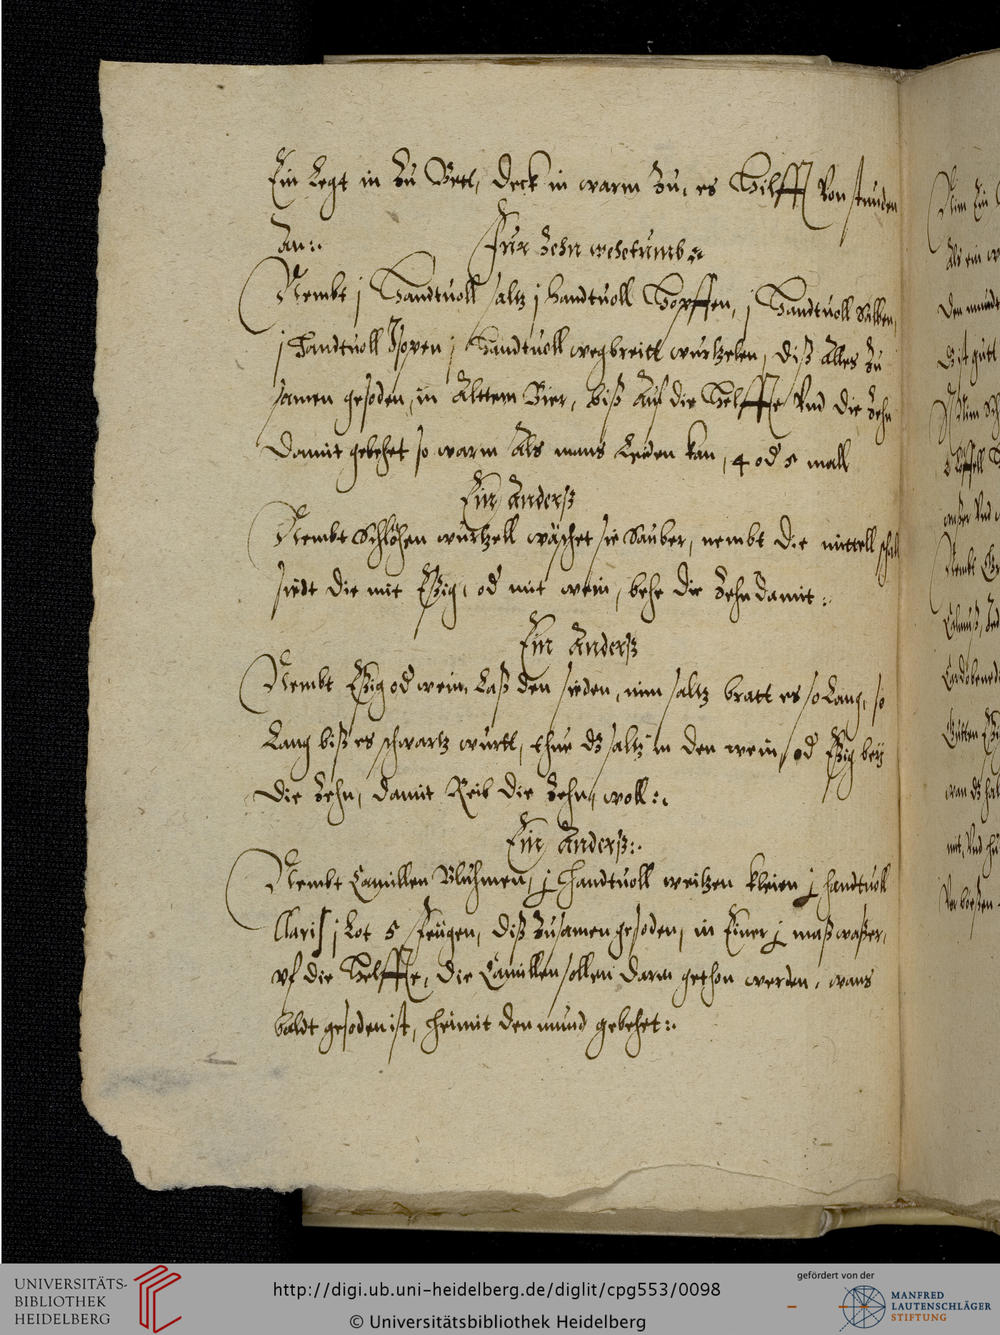 Ein Legt in Zu Bett, deck in warm Zu, es Hilfft Von stunden
An:.
Fur Zehn wehetumb
Nembt j Handtuoll saltz j handtuoll Hopffen, j Handtuoll Salben,
j Handtuoll Isopen j Handtuoll wegbreitt wurtzelen, diß Alles Zu
samen gesoden, in Alttem Bier, biß Auf die Helffte Vnd die Zehn
damit gebehet so warm Als mans Leiden kan, 4 od 5 mall
Ein Anderß
Nembt Schlöhen wurtzell wäschet sie Sauber, nembt die mittell schall
siedt die mit Eßig, od mit wein, behe die Zehn damit:.
Ein Anderß
Nembt Eßig od wein, Laß den sieden, nim saltz bratt es so Lang, so
Lang biß es schwartz wurtt, thue dz saltz in den wein, od Eßig beÿ
die Zehn, damit Reib die Zehn, woll:.
Ein Anderß:.
Nembt Camillen Bluhmen, j Handtuoll weitzen kleien j handtuoll
Claris j Lot 5 Feügen, diß Zusamen gesoden, in Einer j maß waßer,
vf die Helffte, die Camillen sollen darin gethon werden, wans
baldt gesoden ist, heimit den mund gebehet:.
Nim Ein
Als ein
den mundt
Es ist gutt
Nim
Löffell
Vnd
Nembt
Gutten
wan dz
mit, Vnd
UNIVERSITÄTS-
BIBLIOTHEK
HEIDELBERG
http://digi.ub.uni-heidelberg.de/diglit/cpg553/0098
© Universitätsbibliothek Heidelberg
gefördert von der
MANFRED
LAUTENSCHLÄGER
STIFTUNG